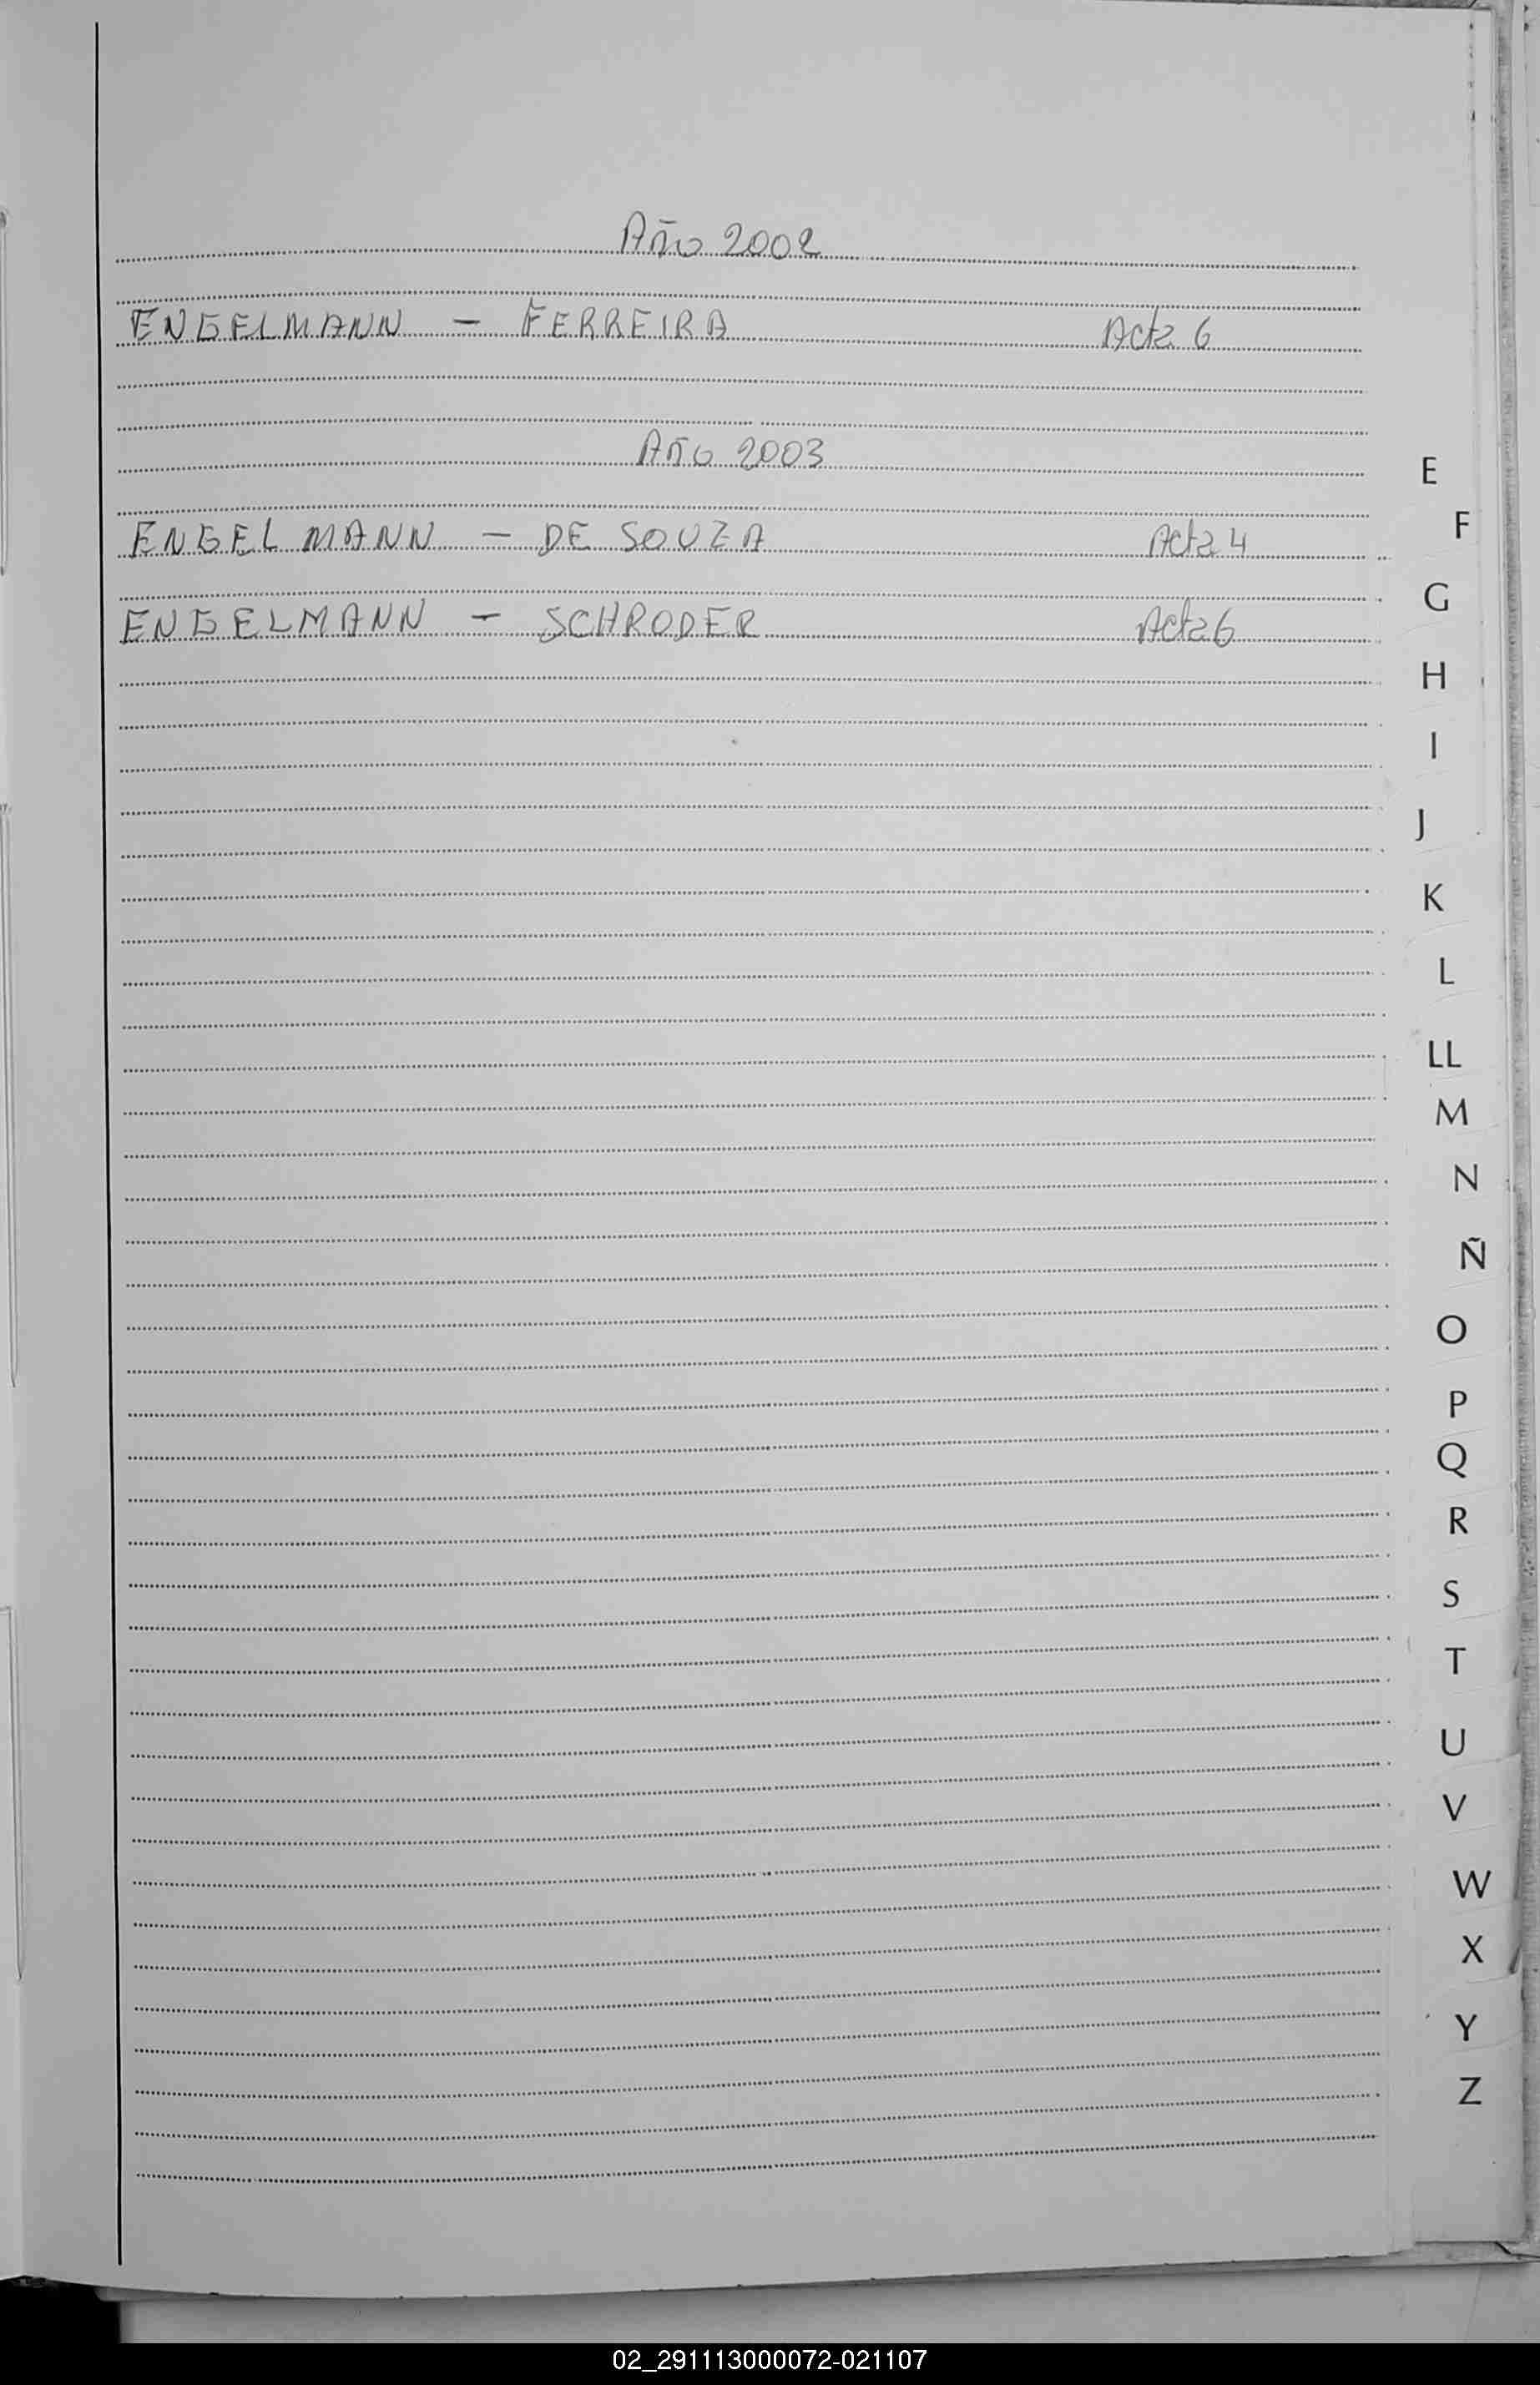 Año 2002
ENGELMANN - FERREIRA Acta 6
Año 2003
ENGELMANN - DE SOUZA Acta 4
ENGELMANN - SCHRODER Acta 6
E
F
G
H
I
J
K
L
LL
M
N
Ñ
O
P
Q
R
S
T
U
V
W
X
Y
Z
02_291113000072-021107